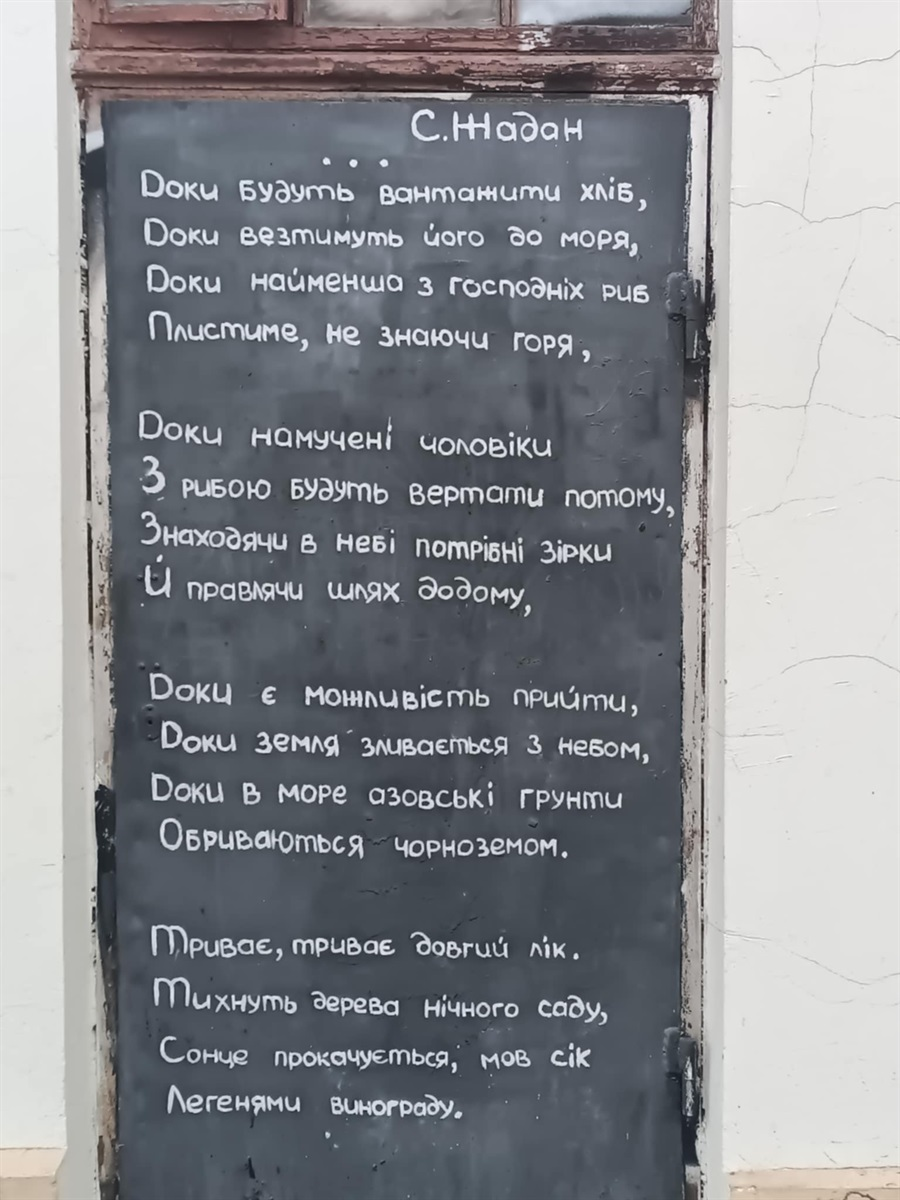 С.Жадан
...
Доки будуть вантажити хліб,
Доки везтимуть його до моря,
Доки найменша з господніх риб
Плистиме, не знаючи горя,
Доки намучені чоловіки
З рибою будуть вертати потому,
Знаходячи в небі потрібні зірки
Й правлячи шлях додому,
Доки є можливість прийти,
Доки земля зливається з небом,
Доки в море азовські грунти
Обриваються чорноземом.
Триває, триває довгий лік.
Тихнуть дерева нічного саду,
Сонце прокачується, мов сік
Легенями винограду.